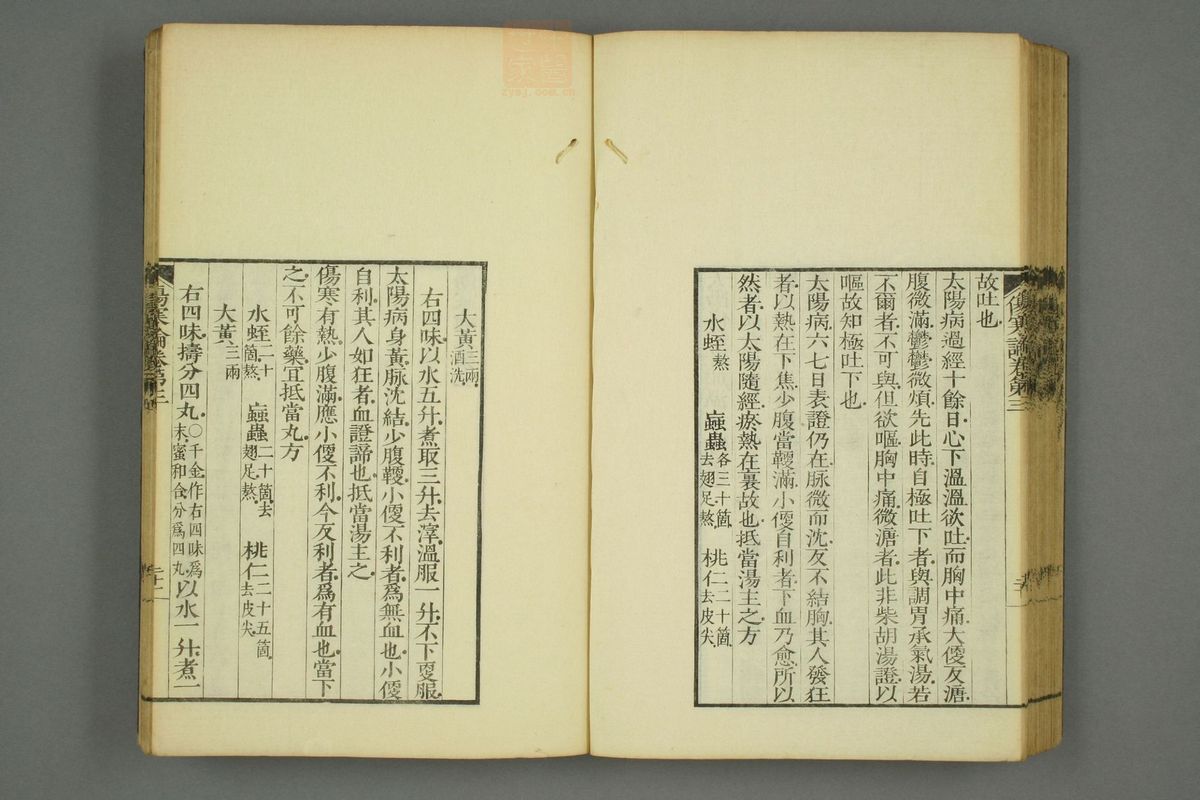 故吐也
太陽病過經十餘日心下溫溫欲吐而胸中痛大便反溏
腹微滿鬱鬱微煩先此時自極吐下者與調胃承氣湯若
不爾者不可與但欲嘔胸中痛微溏者此非柴胡湯證以
嘔故知極吐下也
太陽病六七日表證仍在脉微而沈反不結胸其人發狂
者以熱在下焦少腹當鞕滿小便自利者下血乃愈所以
然者以太陽隨經瘀熱在裏故也抵當湯主之方
水蛭熬 䗪蟲各三十箇去翅足熬 桃仁二十箇去皮尖
大黃三兩酒洗
右四味以水五升煮取三升去滓溫服一升不下更服
太陽病身黃脉沈結少腹鞕小便不利者爲無血也小便
自利其人如狂者血證諦也抵當湯主之
傷寒有熱少腹滿應小便不利今反利者爲有血也當下
之不可餘藥宜抵當丸方
水蛭二十箇熬 䗪蟲二十箇去翅足熬 桃仁二十五箇去皮尖
大黃三兩
右四味擣分四丸〇千金作右四味爲末蜜和合分爲四丸以水一升煮一
傷寒論卷第三
二十一